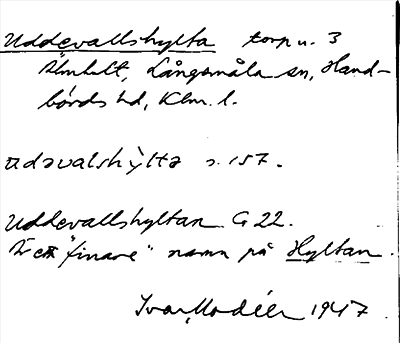 Uddevallshylta torp u. 3
Älmhult, Långemåla sn, Hand-
börds hd, Klm. l.
ɑdəvalshỳltə s. 157.
Uddevallshyltan G 22.
Är ett "finare" namn på Hyltan.
Ivar Modéer 1947